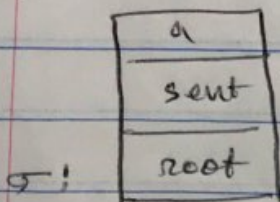 a
sent
σ: root